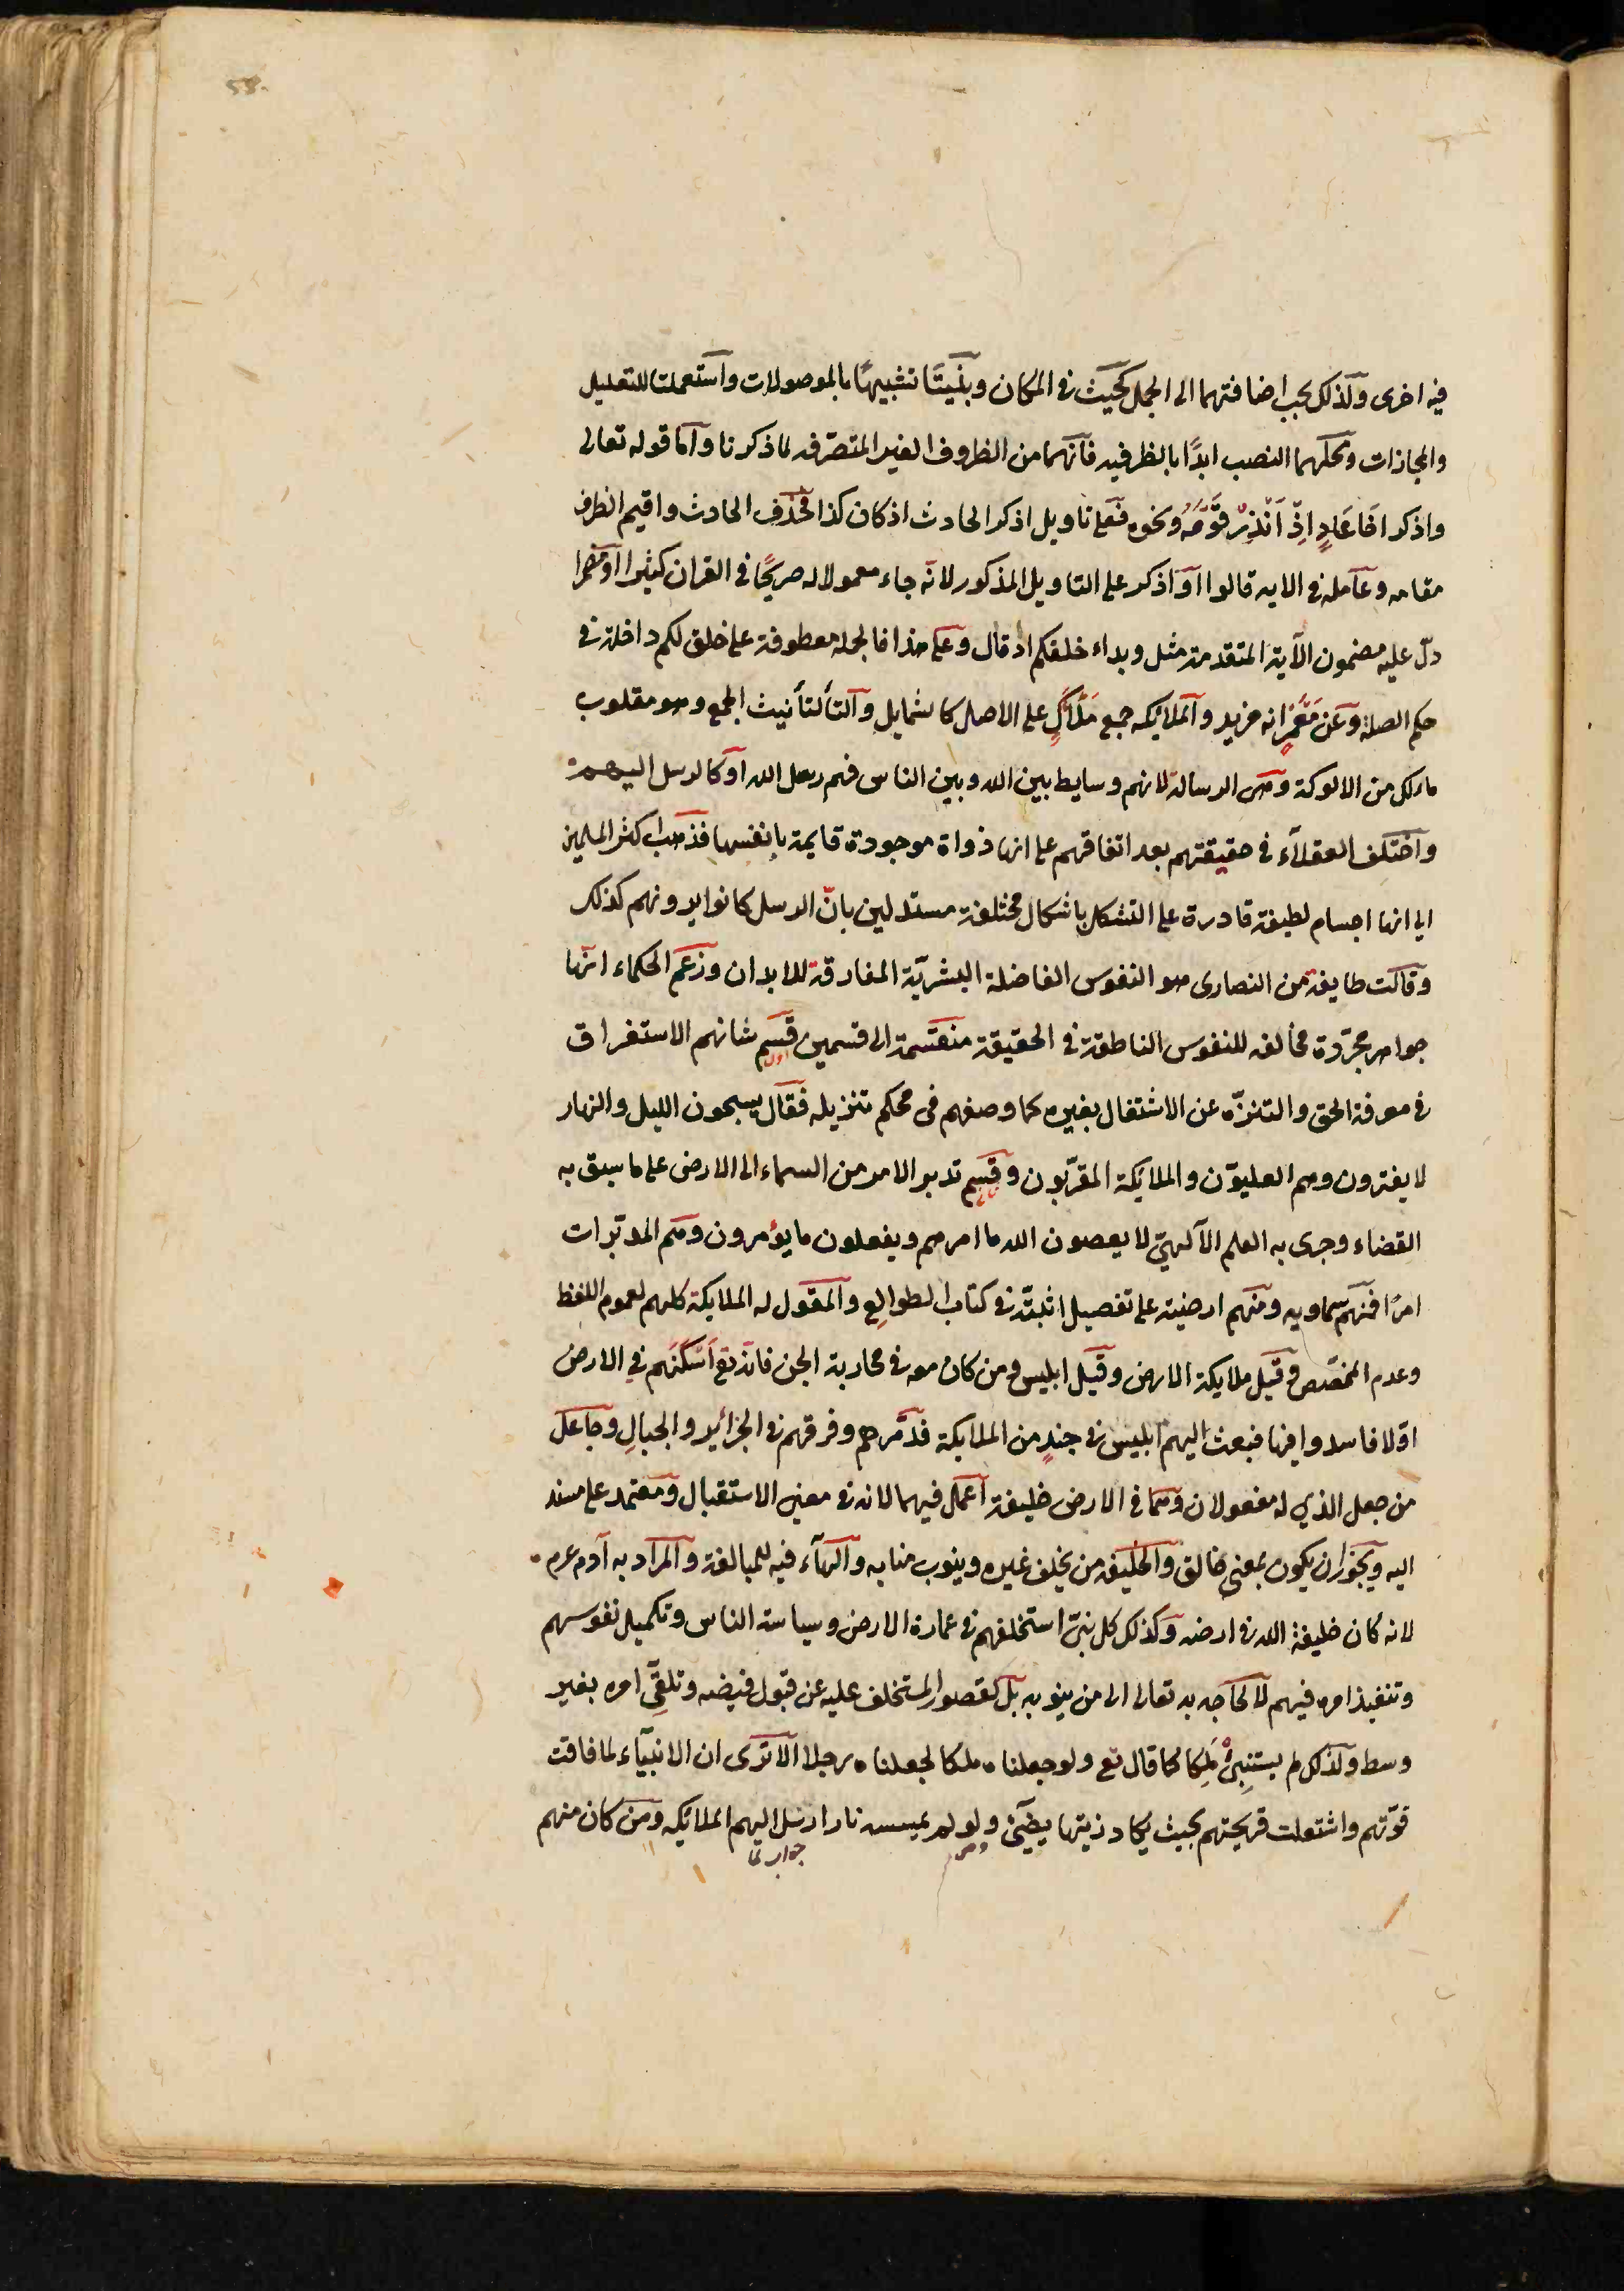 فيه اخرى ولذلك يجب اضافتهما الى الجمل كحيث في المكان وبنيتا تشبيهًا بالموصولات واستعملتا للتعليل
والمجازات ومحلهما النصب ابدًا بالظرفيه فانهما من الظروف الغير المتصرفه لما ذكرنا واما قوله تعالى
واذكر اخا عَادٍ اِذْ اَنْذَرَ قَوْمَهُ ونحوه فعلى تاويل اذكر الحادث اذ كان كذا فحذف الحادث واقيم الظرف
مقامه وعامله في الايه قالوا او اذكر على التاويل المذكور لانّه جاء معمولا له صريحًا في القران كثيرا او مضمرا
دلّ عليه مضمون الآية المتقدمة مثل وبداء خلقكم اذ قال وعلى هذا فالجمله معطوفة على خلق لكم داخلة في
حكم الصلة وعن مَعْمَرٍ انه مزيد والملائكه جمع مَلْأَكٍ على الاصل كالشمايل والتأ لتأنيث الجمع وهو مقلوب
مالك من الالوكة وهى الرسالة لانهم وسايط بين الله وبين الناس فهم رسل الله او كالرسل اليهم
واختلف العقلآء في حقيقتهم بعد اتفاقهم على انها ذواة موجودة قايمة بانفسها فذهب اكثر المسلمين
الى انها اجسام لطيفة قادرة على التشكل باشكال مختلفة مستدلين بانّ الرسل كانوا يرونهم كذلك
وقالت طايفة من النصارى هو النفوس الفاضلة البشريّة المفارقة للابدان وزعم الحكماء انّها
جواهر مجرّدة مخالفه للنفوس الناطقة في الحقيقة منقسمة الى قسمين قسم شانهم الاستغراق
اول
في معرفة الحق والتنزّه عن الاشتغال بغيره كما وصفهم فى محكم تنزيله فقال يسبحون الليل والنهار
لا يفترون وهم العليوّن والملائكة المقرّبون وقسم تدبر الامر من السماء الى الارض على ما سبق به
القضاء وجرى به العلم الآلهيّ لا يعصون الله ما امرهم ويفعلون ما يؤمرون وهم المدبّرات
امرًا فمنهم سماويه ومنهم ارضية على تفصيل اثبتّه في كتاب الطوالع والمقول له الملايكة كلهم لعموم اللفظ
وعدم المخصّص وقيل ملايكة الارض وقيل ابليس ومن كان معه في محاربة الجن فانه تع اسكنهم في الارض
اوّلا فاسدوا فيها فبعث اليهم ابليس في جندٍ من الملايكة فدمّرهم وفرقهم في الجزائر والجبالِ وجاعل
من جعل الذي له مفعولان وهما في الارض خليفة اعمل فيهما لانه في معنى الاستقبال ومعتمد على مسند
اليه ويجوز ان يكون بمعنى خالق والخليفه من يخلف غيره وينوب منابه والهآء فيه للمبالغة والمراد به آدم عم
لانه كان خليفة الله في ارضه وكذلك كل نبيّ استخلفهم في عمارة الارض وسياسة الناس وتكميل نفوسهم
وتنفيذ امره فيهم لا لحاجه به تعالى الى من ينوبه بل لقصور المستخلف عليه عن قبول فيضه وتلقّى امره بغير
وسط ولذلك لم يستنبئ مَلَكا كما قال تع ولو جعلناه ملكا لجعلناه رجلا الا ترى ان الانبيآء لما فاقت
قوّتهم واشتعلت قريحتهم بحيث يكاد زيتها يضيئ ولو لم يمسسه نار ارسل اليهم الملائكه ومن كان منهم
جواب لما